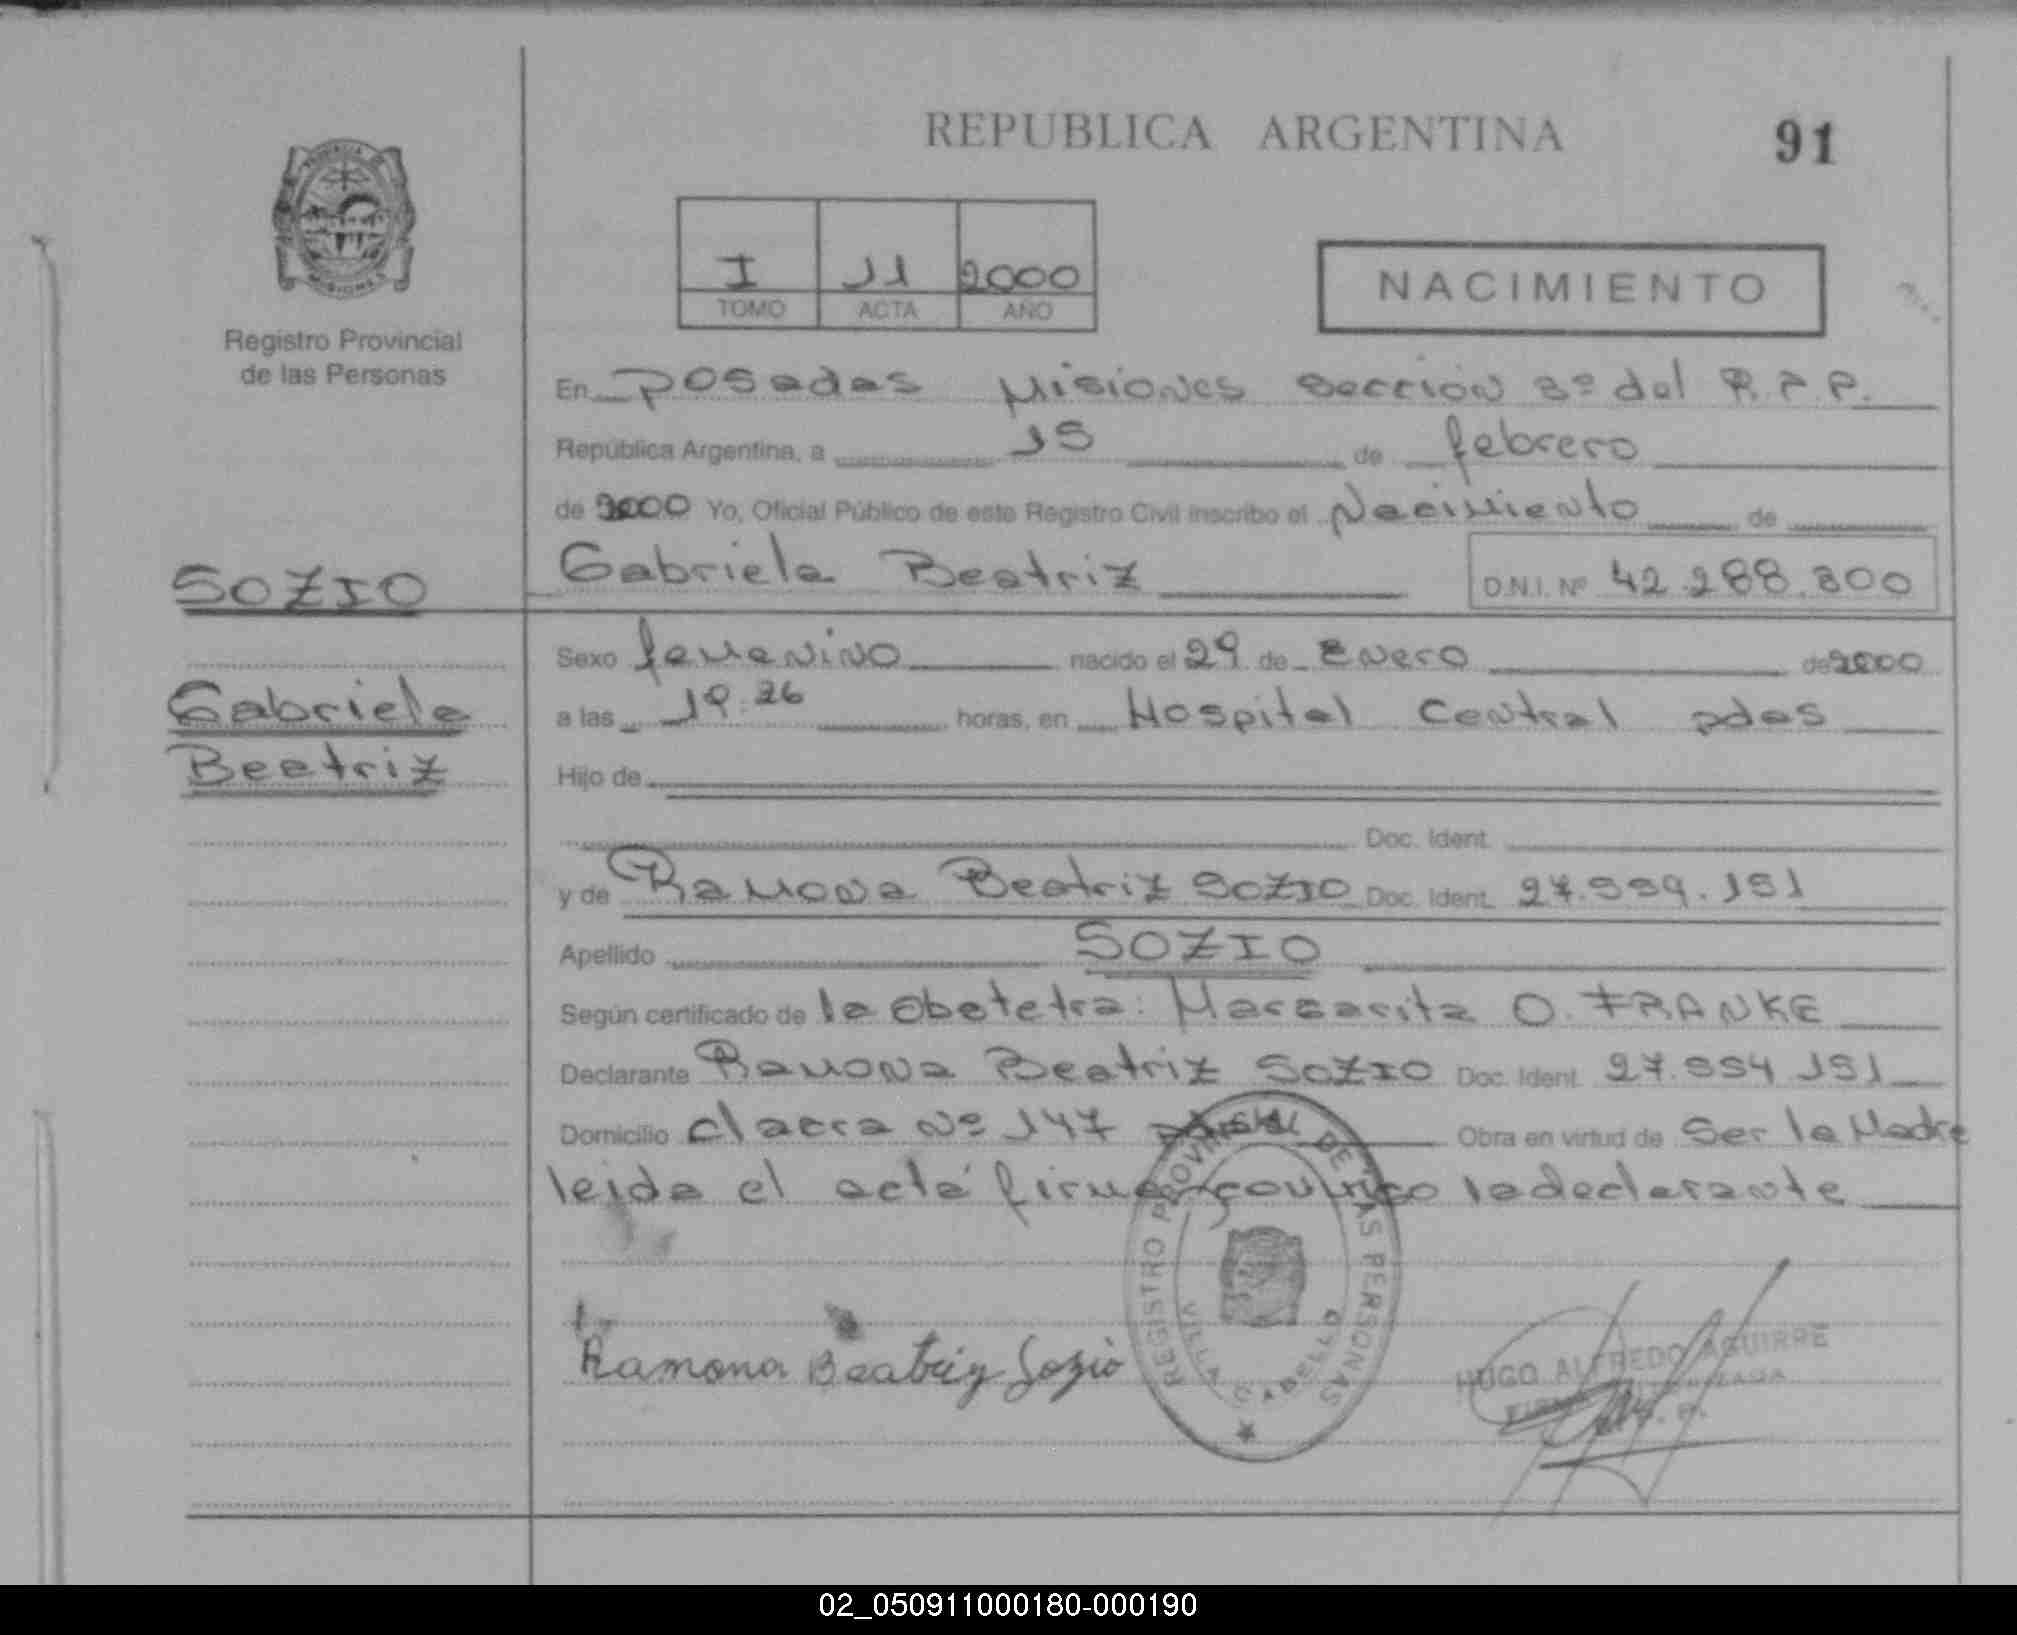 REPUBLICA ARGENTINA
91
I 11 2000
TOMO ACTA AÑO
NACIMIENTO
Registro Provincial
de las Personas
En posadas Misiones sección 3º del R.P.P.
República Argentina, a 15 de febrero
de 2000 Yo, Oficial Público de este Registro Civil inscribo el Nacimiento de
SOZIO
Gabriela Beatriz D.N.I. Nº 42.288.800
Sexo femenino nacido el 29 de Enero de 2000
Gabriela
a las 19.26 horas, en Hospital Central pdas
Beatriz
Hijo de
Doc. Ident.
y de Ramona Beatriz SOZIO Doc. Ident. 27.559.151
Apellido SOZIO
Según certificado de la obstetra: Margarita O. FRANKE
Declarante Ramona Beatriz SOZIO Doc. Ident. 27.554.151
Domicilio chacra Nº 147 Obra en virtud de Ser la Madre
leida el acta firma conmigo la declarante
REGISTRO PROVINCIAL DE LAS PERSONAS
VILLA CABELLO
Ramona Beatriz Sozio
HUGO ALFREDO AGUIRRE
02_050911000180-000190